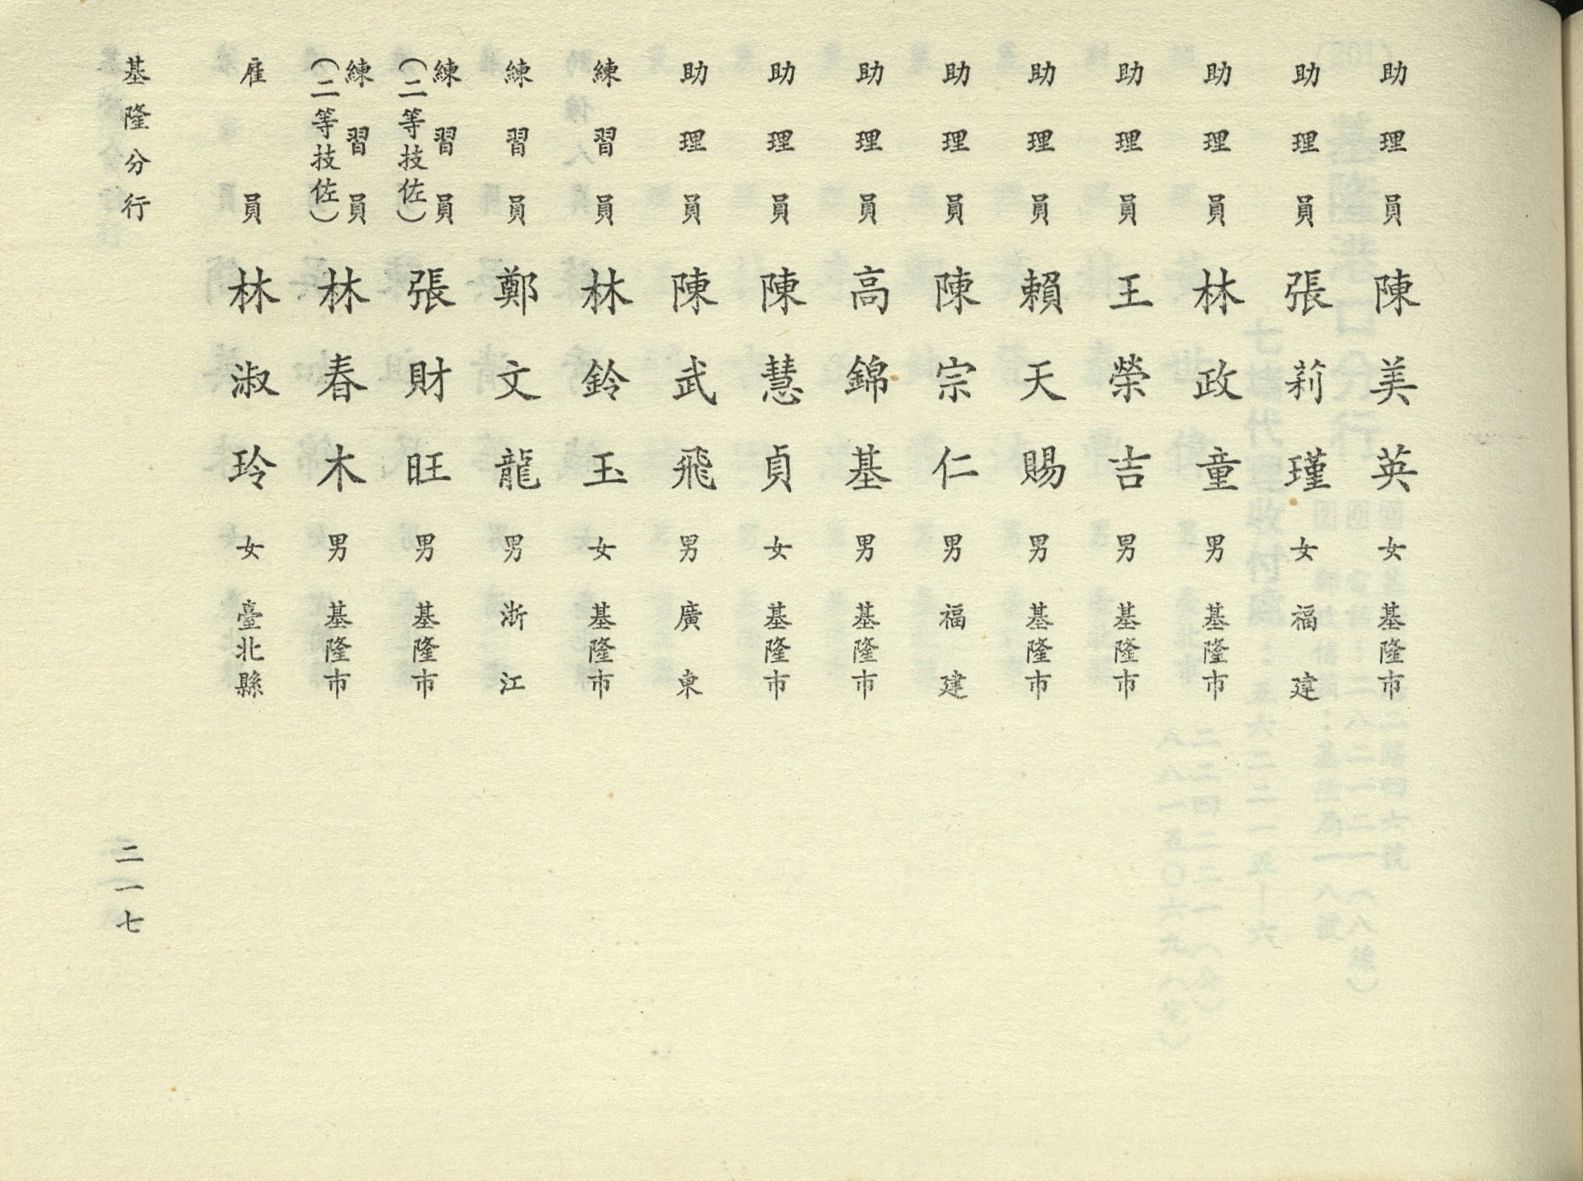 助理員 陳美英 女 基隆市
助理員 張莉瑾 女 福建
助理員 林政童 男 基隆市
助理員 王榮吉 男 基隆市
助理員 賴天賜 男 基隆市
助理員 陳宗仁 男 福建
助理員 高錦基 男 基隆市
助理員 陳慧貞 女 基隆市
助理員 陳武飛 男 廣東
練習員 林鈴玉 女 基隆市
練習員 鄭文龍 男 浙江
練習員(二等技佐) 張財旺 男 基隆市
練習員(二等技佐) 林春木 男 基隆市
雇員 林淑玲 女 臺北縣
基隆分行
二一七